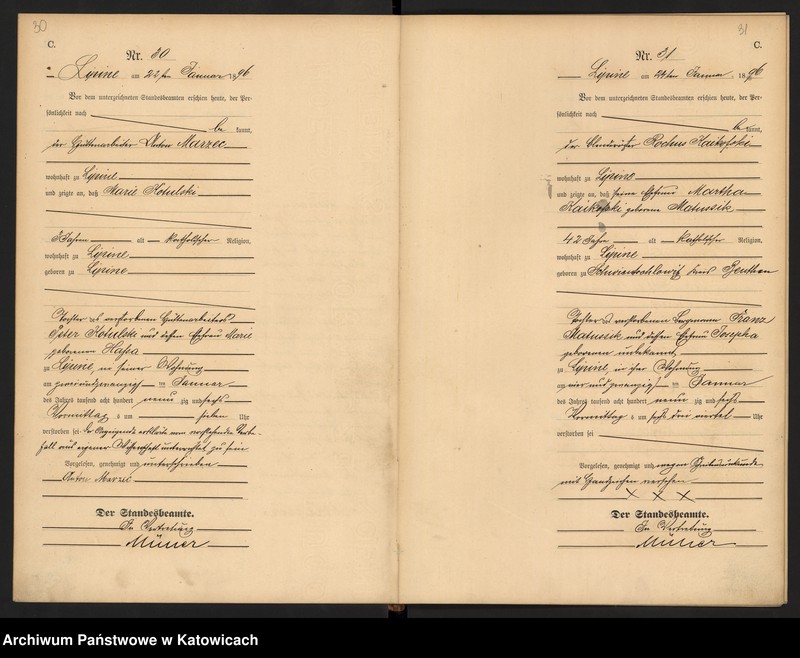 30
C.
Nr. 30
Lipine am 22ten Januar 1896
Vor dem unterzeichneten Standesbeamten erschien heute, der Per-
sönlichkeit nach
be kannt,
der Hüttenarbeiter Anton Marzec
wohnhaft zu Lipine
und zeigte an, daß Marie Kotulski
3 Jahre alt katholischer Religion,
wohnhaft zu Lipine
geboren zu Lipine
Tochter des verstorbenen Hüttenarbeiters
Peter Kotulski und dessen Ehefrau Marie
geborenen
zu Lipine, in seiner Wohnung
am zweiundzwanzigsten Januar
des Jahres tausend acht hundert neun zig und sechs
Vormittag s um sieben Uhr
verstorben sei. Der Anzeigende erklärte von vorstehendem Sterbe-
fall aus eigener Wissenschaft unterrichtet zu sein
Vorgelesen, genehmigt und unterschrieben
Anton Marzec
Der Standesbeamte.
In Vertretung
Müller
31
C.
Nr. 31
Lipine am 24ten Januar 1896
Vor dem unterzeichneten Standesbeamten erschien heute, der Per-
sönlichkeit nach
be kannt,
der Rochus
wohnhaft zu Lipine
und zeigte an, daß seine Ehefrau Martha
geborene Matussik
42 Jahre alt katholischer Religion,
wohnhaft zu Lipine
geboren zu Schwientochlowitz Kreis Beuthen
Tochter des verstorbenen Bergmann Franz
Matussik und dessen Ehefrau Josepha
geborenen unbekannt
zu Lipine, in ihrer Wohnung
am vier und zwanzigsten Januar
des Jahres tausend acht hundert neun zig und sechs
Vormittag s um sechs drei viertel Uhr
verstorben sei
Vorgelesen, genehmigt und wegen Schreibunkunde
mit Handzeichen versehen
X X X
Der Standesbeamte.
In Vertretung
Müller
Archiwum Państwowe w Katowicach